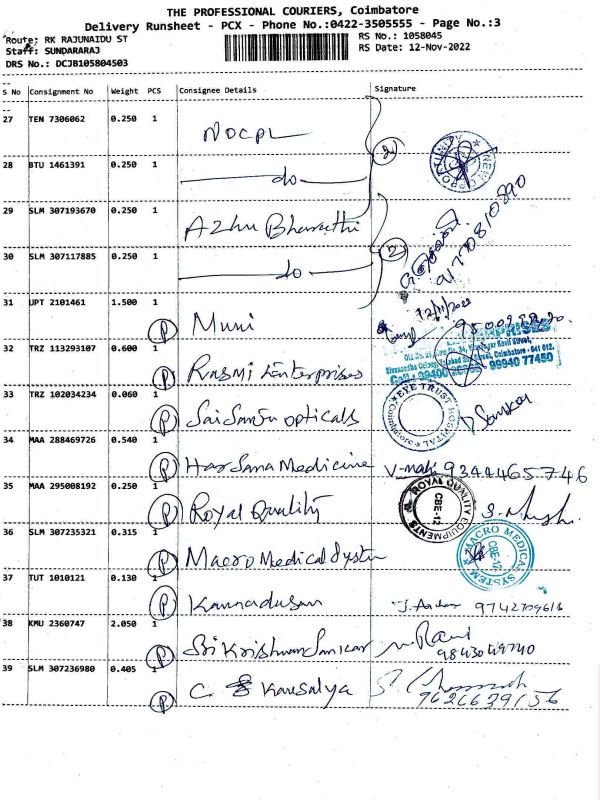 THE PROFESSIONAL COURIERS, Coimbatore
Delivery Runsheet - PCX - Phone No.:0422-3505555 - Page No.:3
Route: RK RAJUNAIDU ST
Staff: SUNDARARAJ
DRS No.: DCJB105804503
RS No.: 1058045
RS Date: 12-Nov-2022
S No Consignment No Weight PCS Consignee Details Signature
27 TEN 7306062 0.250 1
NOCPL
28 BTU 1461391 0.250 1
do
2
29 SLM 307193670 0.250 1
Azhu Bharathi
30 SLM 307117885 0.250 1
do
2
31 UPT 2101461 1.500 1
P Muni
12/11/2022
32 TRZ 113293107 0.600 1
P Rasmi Enterprises
Coimbatore - 641 012.
99940 77450
33 TRZ 102034234 0.060 1
P Sai Santu opticals
EYE TRUST HOSPITAL
34 MAA 288469726 0.540 1
P Harsana Medicine 9344465746
35 MAA 295008192 0.250 1
P Royal Quality
ROYAL QUALITY EQUIPMENTS
CBE-12
36 SLM 307235321 0.315 1
P Macro Medical System
MACRO MEDICAL SYSTEM
CBE-12
37 TUT 1010121 0.130 1
P Kannadasan
38 KMU 2360747 2.050 1
P Sri Krishnan Sankar
9843049740
39 SLM 307236980 0.405 1
P C. Kausalya
9626639156